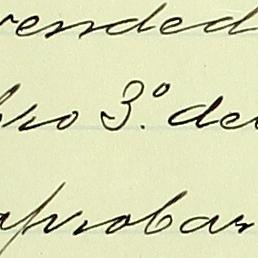 vended
bro 3º. del
aprobar